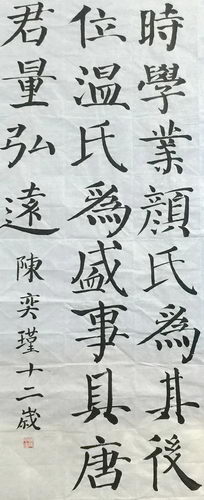 時學業顏氏為其後
位溫氏爲盛事具唐
君量弘遠
陳奕瑾十二歲